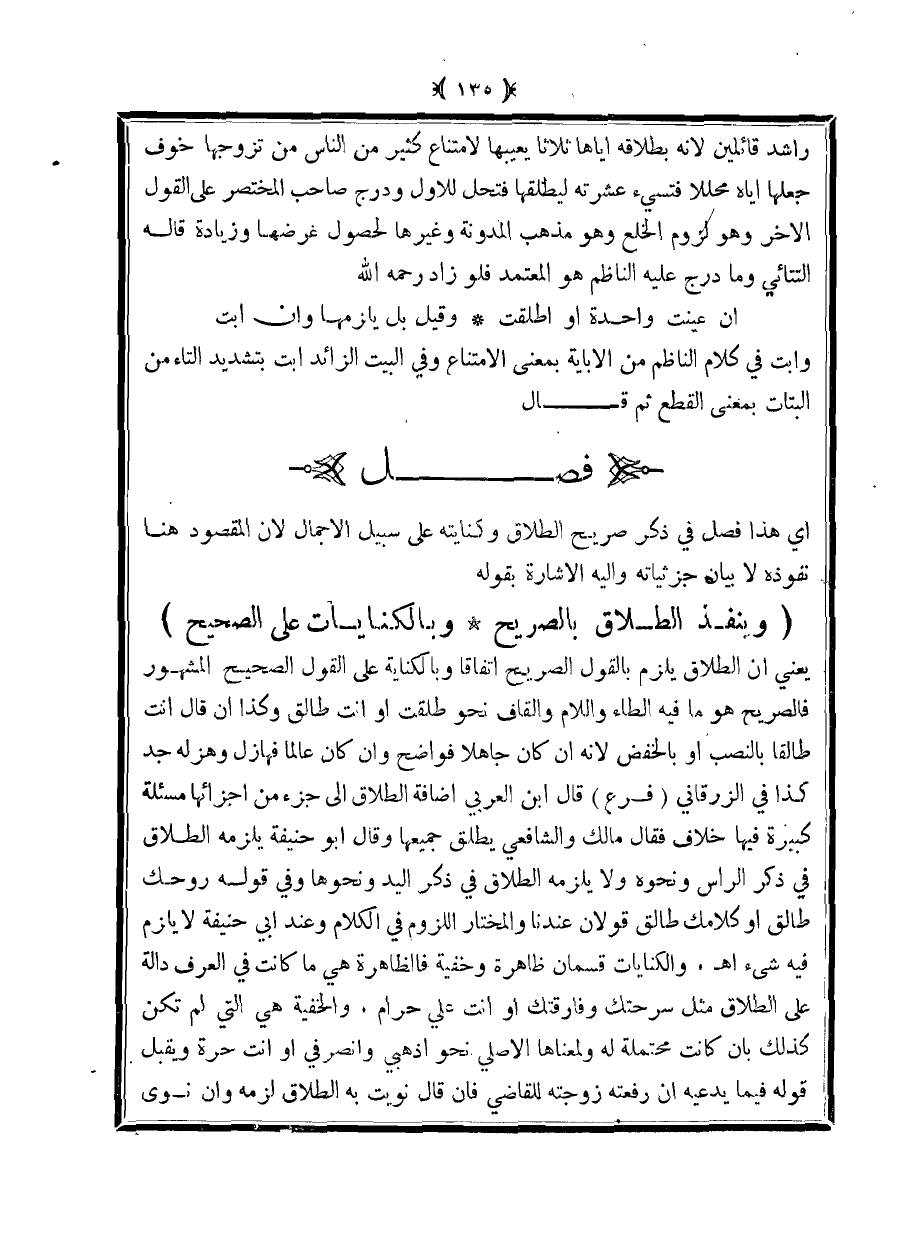 ﴿ ١٣٥ ﴾
راشد قائلين لانه بطلاقه اياها ثلاثا يعيبها لامتناع كثير من الناس من تزوجها خوف
جعلها اياه محللا فتسيء عشرته ليطلقها فتحل للاول ودرج صاحب المختصر على القول
الاخر وهو لزوم الخلع وهو مذهب المدونة وغيرها لحصول غرضها وزيادة قاله
التتائي وما درج عليه الناظم هو المعتمد فلو زاد رحمه الله
ان عينت واحدة او اطلقت * وقيل بل يلزمها وان ابت
وابت في كلام الناظم من الاباية بمعنى الامتناع وفي البيت الزائد ابت بتشديد التاء من
البتات بمعنى القطع ثم قـــــال
فصـــــــل
اي هذا فصل في ذكر صريح الطلاق وكنايته على سبيل الاجمال لان المقصود هنا
نفوذه لا بيان جزئياته واليه الاشارة بقوله
( وينفذ الطلاق بالصريح * وبالكنايات على الصحيح )
يعني ان الطلاق يلزم بالقول الصريح اتفاقا وبالكناية على القول الصحيح المشهور
فالصريح هو ما فيه الطاء واللام والقاف نحو طلقت او انت طالق وكذا ان قال انت
طالقا بالنصب او بالخفض لانه ان كان جاهلا فواضح وان كان عالما فهازل وهزله جد
كذا في الزرقاني ( فرع ) قال ابن العربي اضافة الطلاق الى جزء من اجزائها مسئلة
كبيرة فيها خلاف فقال مالك والشافعي يطلق جميعها وقال ابو حنيفة يلزمه الطلاق
في ذكر الراس ونحوه ولا يلزمه الطلاق في ذكر اليد ونحوها وفي قوله روحك
طالق او كلامك طالق قولان عندنا والمختار اللزوم في الكلام وعند ابي حنيفة لا يلزم
فيه شيء اهـ . والكنايات قسمان ظاهرة وخفية فالظاهرة هي ما كانت في العرف دالة
على الطلاق مثل سرحتك وفارقتك او انت علي حرام . والخفية هي التي لم تكن
كذلك بان كانت محتملة له ولمعناها الاصلي نحو اذهبي وانصرفي او انت حرة ويقبل
قوله فيما يدعيه ان رفعته زوجته للقاضي فان قال نويت به الطلاق لزمه وان نوى